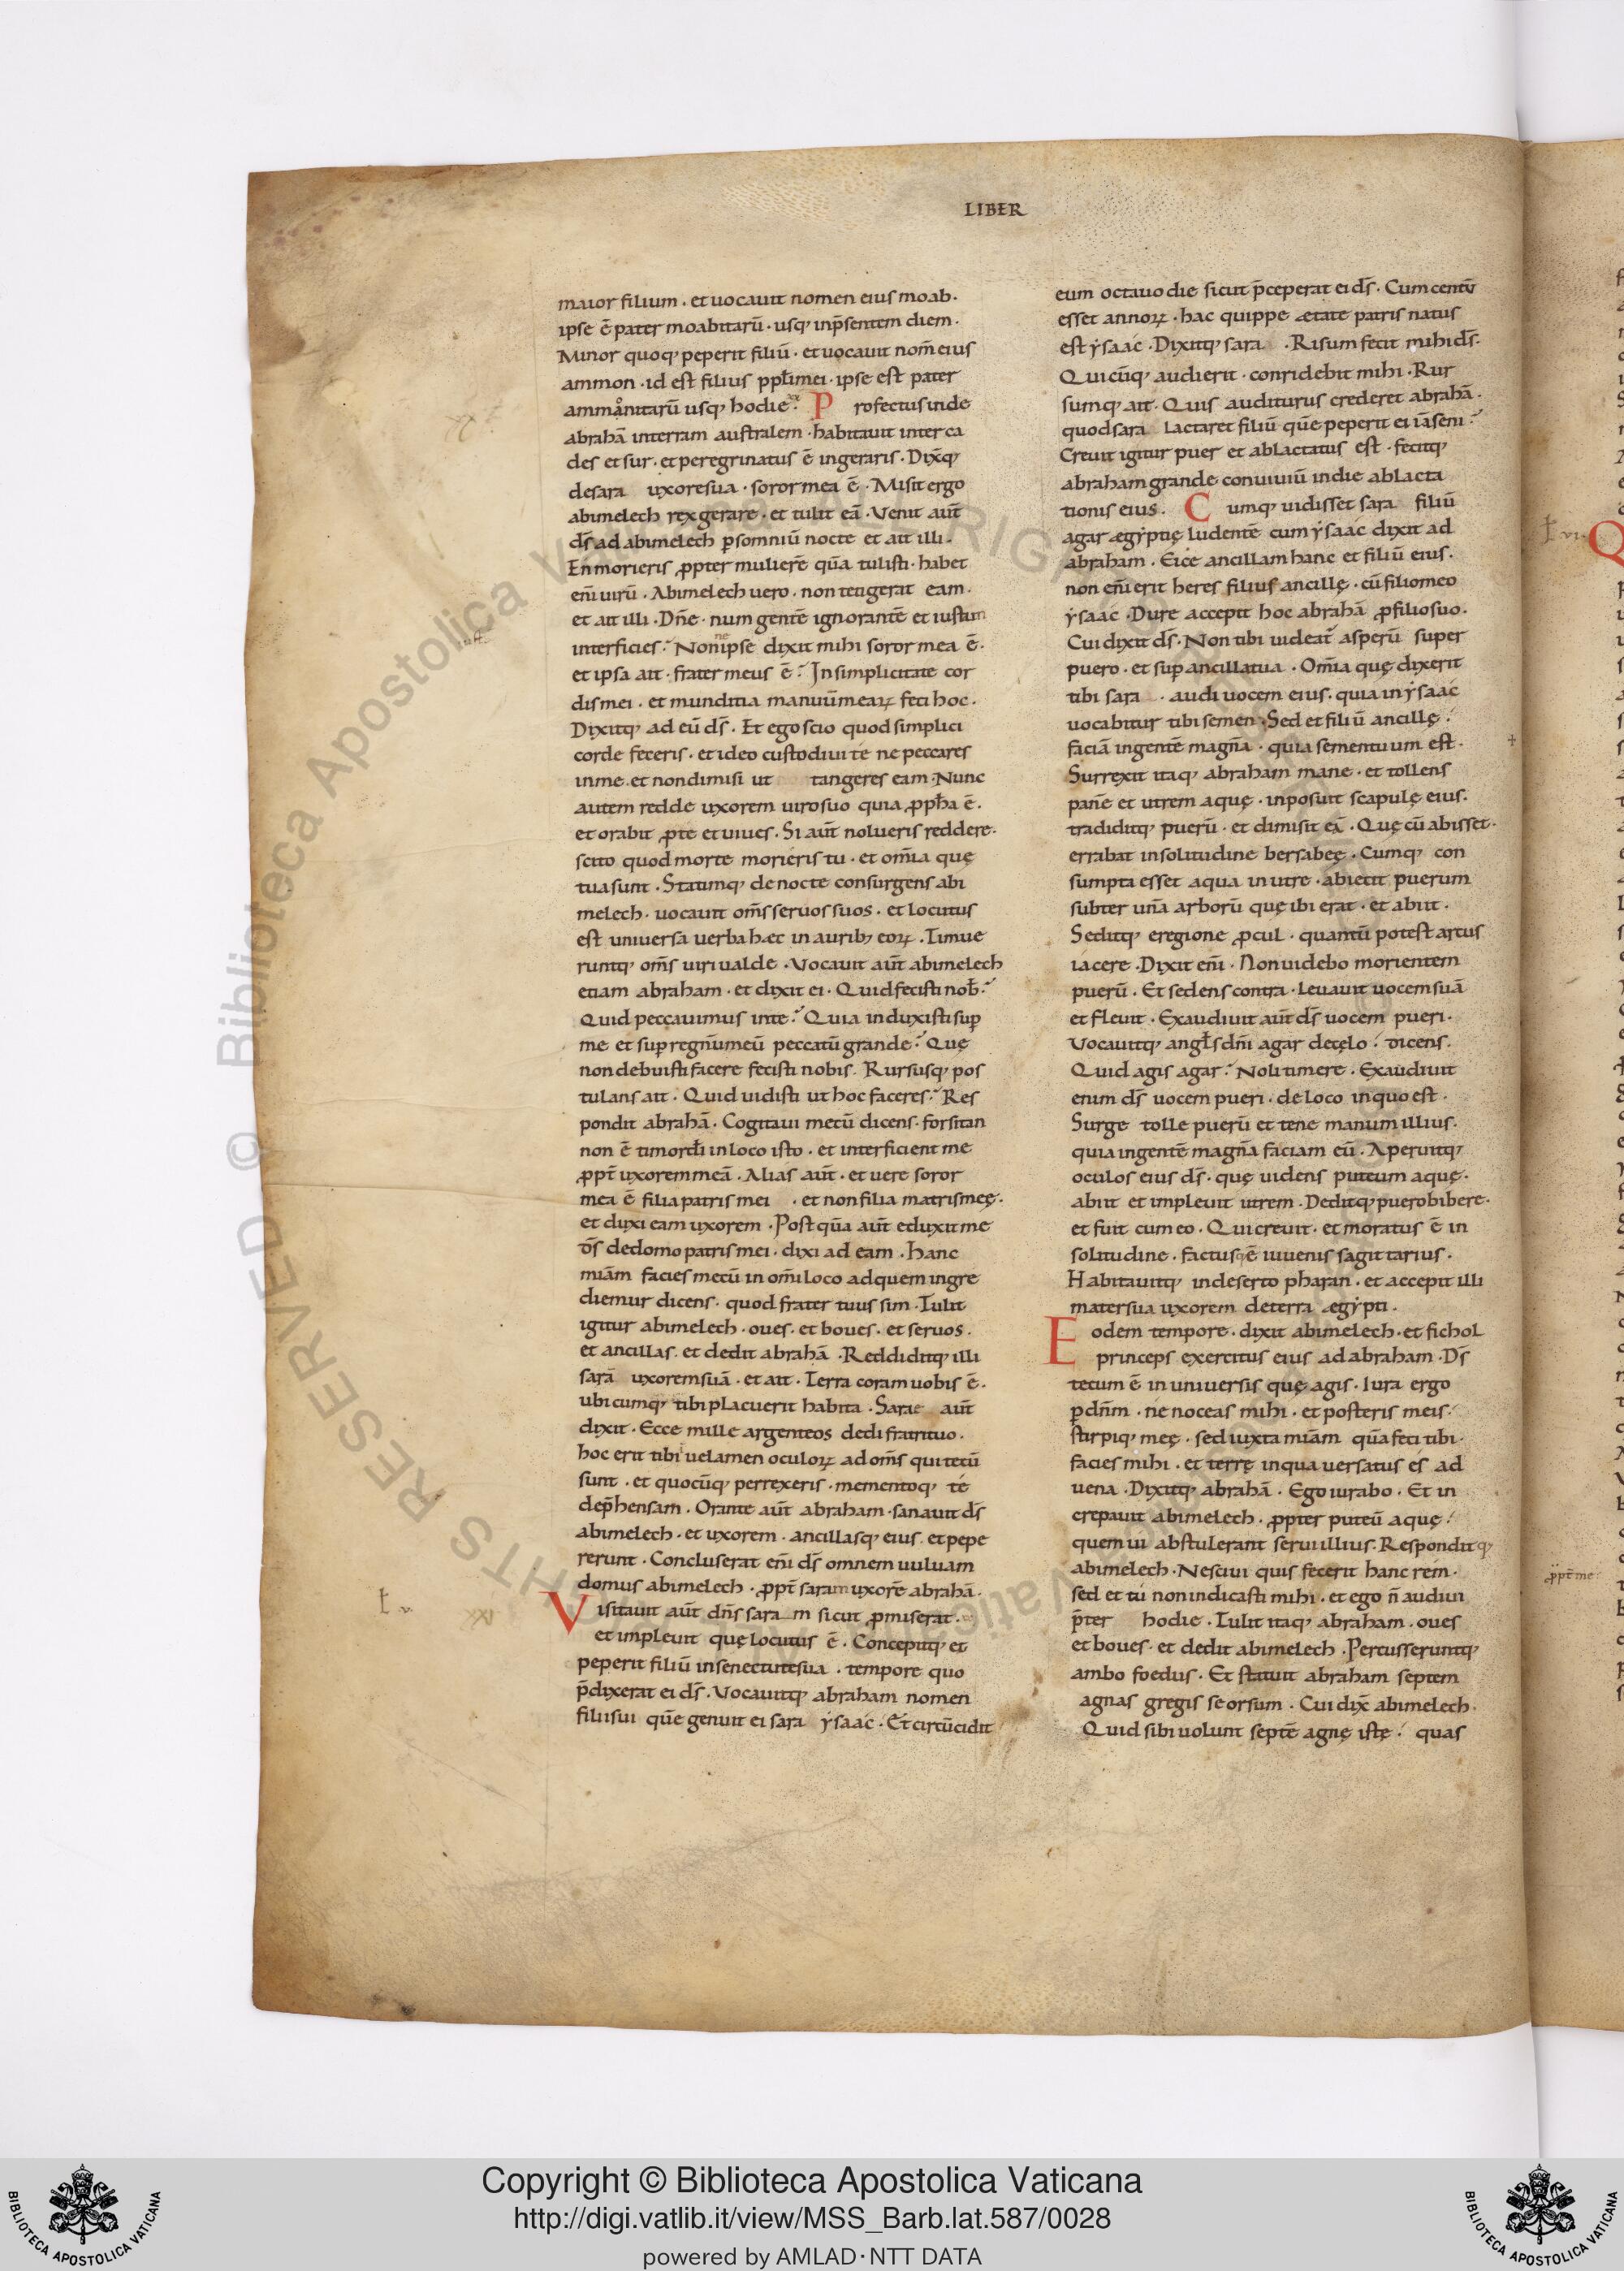 LIBER
maior filium · et uocauit nomen eius moab ·
ipse ē pater moabitarū · usq; in p̄sentem diem ·
Minor quoq; peperit filiū · et uocauit nom̄ eius
ammon · id est filius pp̄li mei · ipse est pater
ammanitarū usq; hodie · Profectus inde
abrahā in terram australem · habitauit inter ca
des et sur · et peregrinatus ē in geraris · Dix̄q;
de sara uxore sua · soror mea ē · Misit ergo
abimelech rex gerare · et tulit eā · Venit aūt
d̄s ad abimelech ꝑ somniū nocte et ait illi ·
En morieris ꝓpter mulierē quā tulisti · habet
eni̅ uirū · Abimelech uero · non tetigerat eam ·
et ait illi · Dn̄e · num gentē ignorantē et iustum
interficies? Nonne ipse dixit mihi soror mea ē ·
et ipsa ait · frater meus ē? In simplicitate cor
dis mei · et munditia manuū mearꝝ feci hoc ·
Dixitq; ad eū d̄s · Et ego scio quod simplici
corde feceris · et ideo custodiui te ne peccares
in me · et non dimisi ut tangeres eam · Nunc
autem redde uxorem uiro suo quia ꝓph̄a ē ·
et orabit ꝓ te et uiues · Si aūt nolueris reddere ·
scito quod morte morieris tu · et om̄ia quę
tua sunt · Statimq; de nocte consurgens abi
melech · uocauit om̄s seruos suos · et locutus
est uniuersa uerba hæc in aurib; eorꝝ · Timue
runtq; om̄s uiri ualde · Vocauit aūt abimelech
etiam abraham · et dixit ei · Quid fecisti nob̄?
Quid peccauimus in te? Quia induxisti suꝑ
me et suꝑ regnū meū peccatū grande? Quę
non debuisti facere fecisti nobis · Rursusq; pos
tulans ait · Quid uidisti ut hoc faceres? Res
pondit abrahā · Cogitaui mecū dicens · forsitan
non ē timor d̄i in loco isto · et interficient me
ꝓpt̄ uxorem meā · Alias aūt · et uere soror
mea ē filia patris mei · et non filia matris meę ·
et duxi eam uxorem · Post quā aūt eduxit me
d̄s de domo patris mei · dixi ad eam · hanc
miām facies mecū in om̄i loco ad quem ingre
diemur dicens · quod frater tuus sim · Tulit
igitur abimelech · oues · et boues · et seruos ·
et ancillas · et dedit abrahā · Reddiditq; illi
sarā uxorem suā · et ait · Terra coram uobis ē ·
ubicumq; tibi placuerit habita · Sarae aūt
dixit · Ecce mille argenteos dedi fratri tuo ·
hoc erit tibi uelamen oculorꝝ ad om̄s qui tecū
sunt · et quocūq; perrexeris · mementoq; té
dep̄hensam · Orante aūt abraham · sanauit d̄s
abimelech · et uxorem · ancillasq; eius · et pepe
rerunt · Concluserat eni̅ d̄s omnem uuluam
domus abimelech · ꝓpt̄ saram uxorē abrahā ·
t̄ v. xxi
Visitauit aūt dn̄s saram sicut ꝓmiserat ·
et impleuit quę locutus ē · Concepitq; et
peperit filiū in senectute sua · tempore quo
p̄dixerat ei d̄s · Vocauitq; abraham nomen
filii sui quē genuit ei sara ẏsaac · Et circūcidit
eum octauo die sicut p̄ceperat ei d̄s · Cum centū
esset annorꝝ · hac quippe ætate patris natus
est ẏsaac · Dixitq; sara · Risum fecit mihi d̄s ·
Quicūq; audierit · conridebit mihi · Rur
sumq; ait · Quis auditurus crederet abrahā ·
quod sara lactaret filiū quē peperit ei iā seni?
Creuit igitur puer et ablactatus est · fecitq;
abraham grande conuiuiū in die ablacta
tionis eius · Cumq; uidisset sara filiū
agar ægẏptię ludentē cum ẏsaac dixit ad
abraham · Eice ancillam hanc et filiū eius ·
non eni̅ erit heres filius ancillę · cū filio meo
ẏsaac · Dure accepit hoc abrahā ꝓ filio suo ·
Cui dixit d̄s · Non tibi uideat̄ asperū super
puero · et suꝑ ancilla tua · Om̄ia quę dixerit
tibi sara · audi uocem eius · quia in ẏsaac
uocabitur tibi semen · Sed et filiū ancillę ·
faciā in gentē magnā · quia semen tuum est ·
Surrexit itaq; abraham mane · et tollens
panē et utrem aquę · inposuit scapulę eius ·
tradiditq; puerū · et dimisit eā · Quę cū abisset ·
errabat in solitudine bersabeę · Cumq; con
sumpta esset aqua in utre · abiecit puerum
subter unā arborū quę ibi erat · et abiit ·
Seditq; e regione ꝓcul · quantū potest arcus
iacere · Dixit eni̅ · Non uidebo morientem
puerū · Et sedens contra · leuauit uocem suā
et fleuit · Exaudiuit aūt d̄s uocem pueri ·
Vocauitq; angl̄s dn̄i agar de cęlo · dicens ·
Quid agis agar? Noli timere · Exaudiuit
enim d̄s uocem pueri · de loco in quo est ·
Surge tolle puerū et tene manum illius ·
quia in gentē magnā faciam eū · Aperuitq;
oculos eius d̄s · quę uidens puteum aquę ·
abiit et impleuit utrem · Deditq; puero bibere ·
et fuit cum eo · Qui creuit · et moratus ē in
solitudine · factusq; ē iuuenis sagittarius ·
Habitauitq; in deserto pharan · et accepit illi
mater sua uxorem de terra ægẏpti ·
Eodem tempore · dixit abimelech · et fichol
princeps exercitus eius ad abraham · D̄s
tecum ē in uniuersis quę agis · Iura ergo
ꝑ dn̄m · ne noceas mihi · et posteris meis ·
stirpiq; meę · sed iuxta miām quā feci tibi ·
facies mihi · et terrę in qua uersatus es ad
uena · Dixitq; abrahā · Ego iurabo · Et in
crepauit abimelech · ꝓpter puteū aquę ·
quem ui abstulerant serui illius · Responditq;
abimelech · Nesciui quis fecerit hanc rem ·
sed et tu non indicasti mihi · et ego n̄ audiui
p̄ter hodie · Tulit itaq; abraham · oues
et boues · et dedit abimelech · Percusseruntq;
ambo foedus · Et statuit abraham septem
agnas gregis seorsum · Cui dix̄ abimelech ·
Quid sibi uolunt septē agnę istę · quas
ꝓpt̄ me
Copyright © Biblioteca Apostolica Vaticana
http://digi.vatlib.it/view/MSS_Barb.lat.587/0028
powered by AMLAD·NTT DATA
BIBLIOTECA APOSTOLICA VATICANA
BIBLIOTECA APOSTOLICA VATICANA